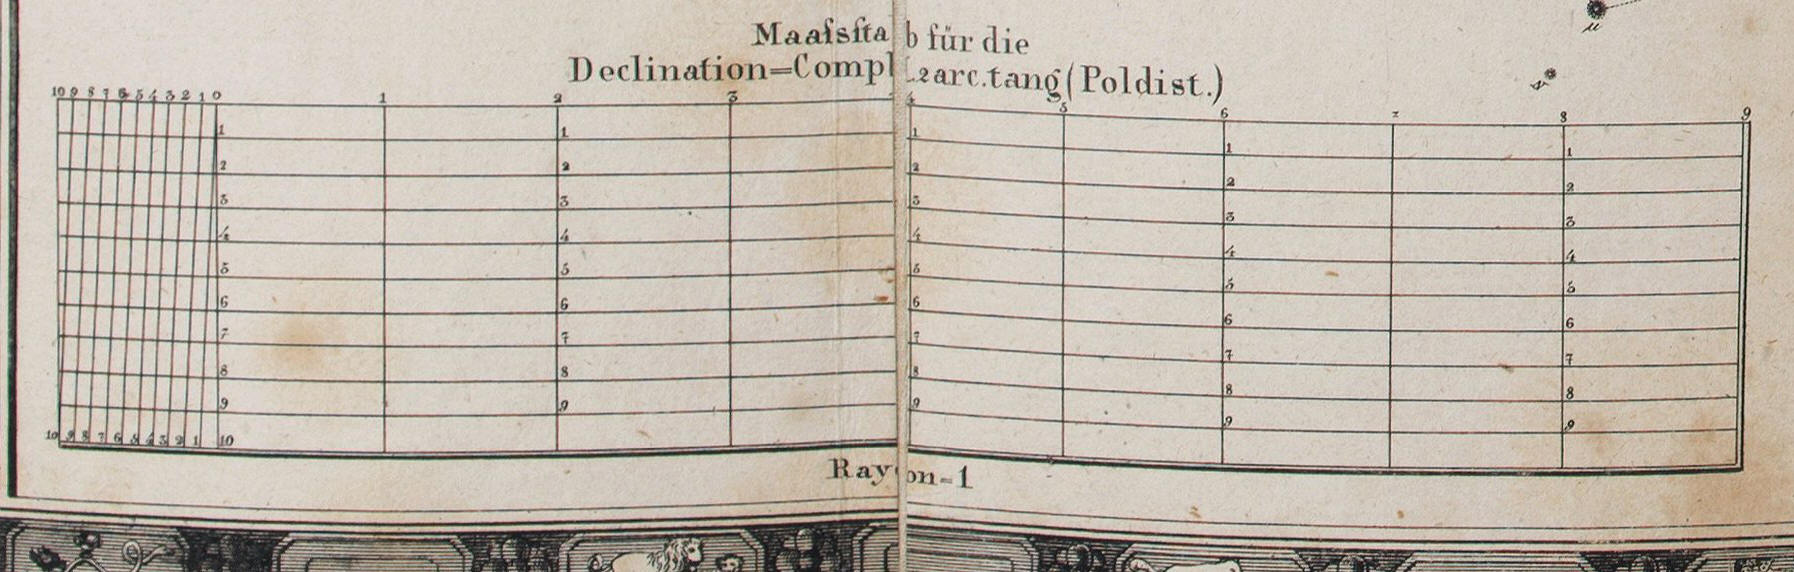 Maaſsſtab für die
Declination=Compl. 2 arc. tang (Poldist.)
10 9 8 7 6 5 4 3 2 1 0 1 2 3 4 5 6 7 8 9
1 1 1 1 1
2 2 2 2 2
3 3 3 3 3
4 4 4 4 4
5 5 5 5 5
6 6 6 6 6
7 7 7 7 7
8 8 8 8 8
9 9 9 9 9
10 9 8 7 6 5 4 3 2 1 10
Rayon=1
μ